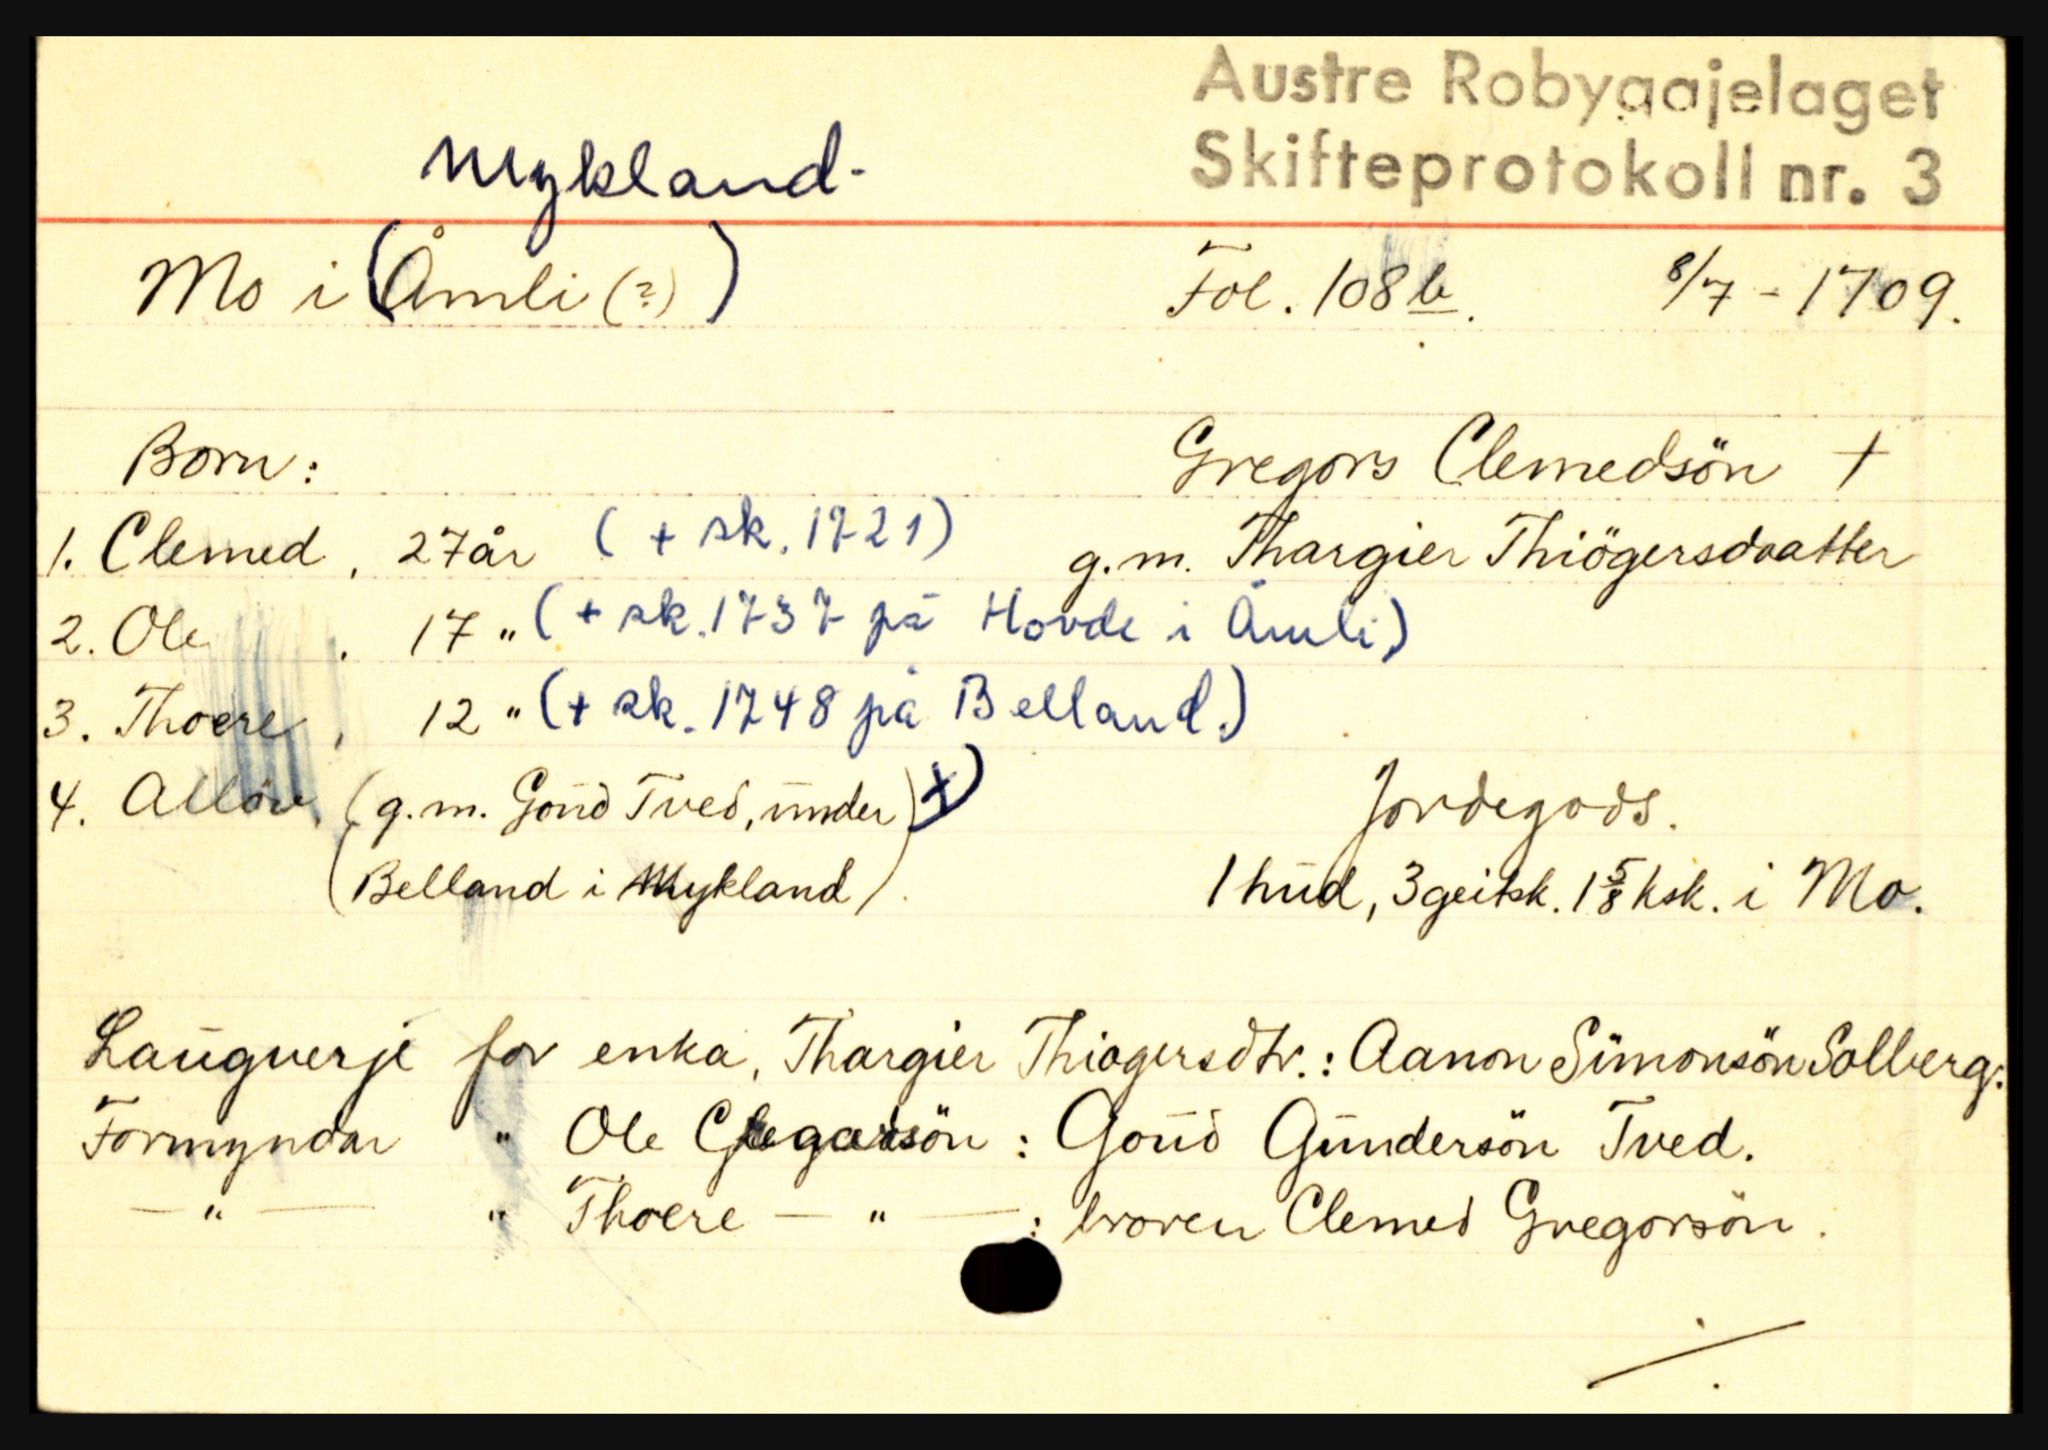 Austre Robyggjelaget
Mykland.
Skifteprotokoll nr. 3
Mo i (Åmli (?)) Fol. 108 b. 8/7 - 1709.
Born: Gregors Clemedsön +
1. Clemed, 27 år (+ sk. 1721) g.m. Thargier Thiögersdaatter
2. Ole, 17 " (+ sk. 1737 på Hovde i Åmli)
3. Thoere, 12 " (+ sk. 1748 på Belland.)
4. (g.m. Goud Tved, under) +) Jordegods.
(Belland i Mykland). 1 hud, 3 geitsk. 1 5/8 ksk. i Mo.
Laugverje for enka, Thargier Thiogersdtr.: Aanon Simonsön Solberg.
Formyndar " Ole Gregorsön : Goud Gundersön Tved.
— " — " Thoere — " — : broren Clemed Gregorsön.